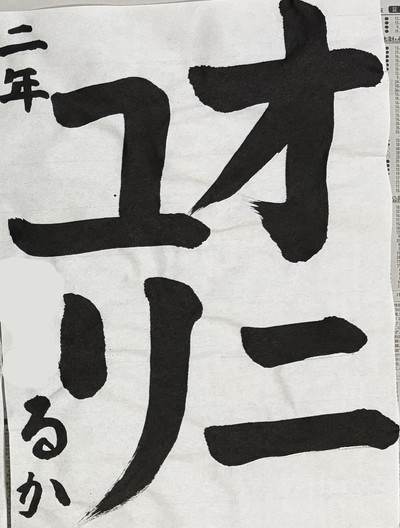 オニ
ユリ
二年
るか